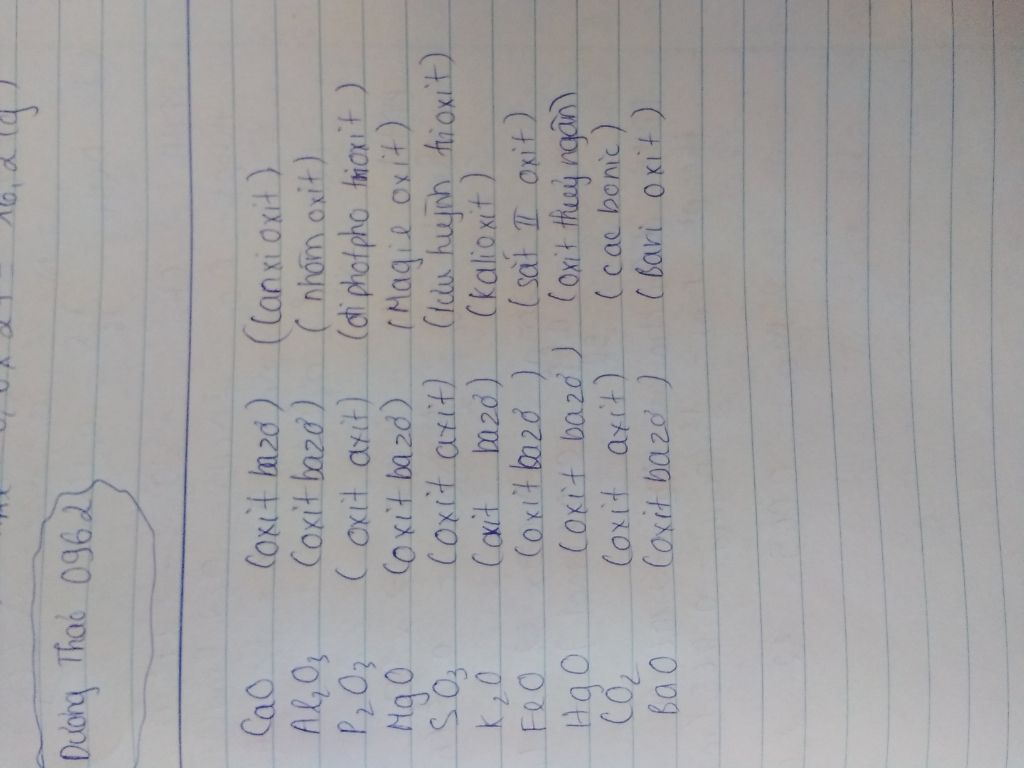 = 16,2 (g)
Dương Thảo 0962
CaO (oxit bazơ) (Canxi oxit)
Al2O3 (oxit bazơ) (nhôm oxit)
P2O3 (oxit axit) (đi photpho trioxit)
MgO (oxit bazơ) (Magie oxit)
SO3 (oxit axit) (lưu huỳnh trioxit)
K2O (oxit bazơ) (Kalioxit)
FeO (oxit bazơ) (sắt II oxit)
HgO (oxit bazơ) (oxit thuỷ ngân)
CO2 (oxit axit) (cacbonic)
BaO (oxit bazơ) (Bari oxit)